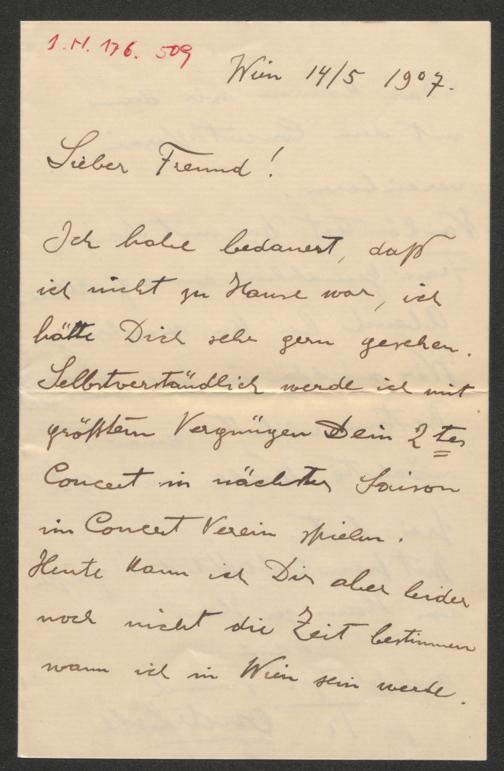 I.N. 176.509
Wien 14/5 1907.
Lieber Freund!
Ich habe bedauert, daß
ich nicht zu Hause war, ich
hätte Dich sehr gern gesehen.
Selbstverständlich werde ich mit
größtem Vergnügen Dein 2tes
Concert in nächster Saison
im Concert Verein spielen.
Heute kann ich Dir aber leider
noch nicht die Zeit bestimmen
wann ich in Wien sein werde.